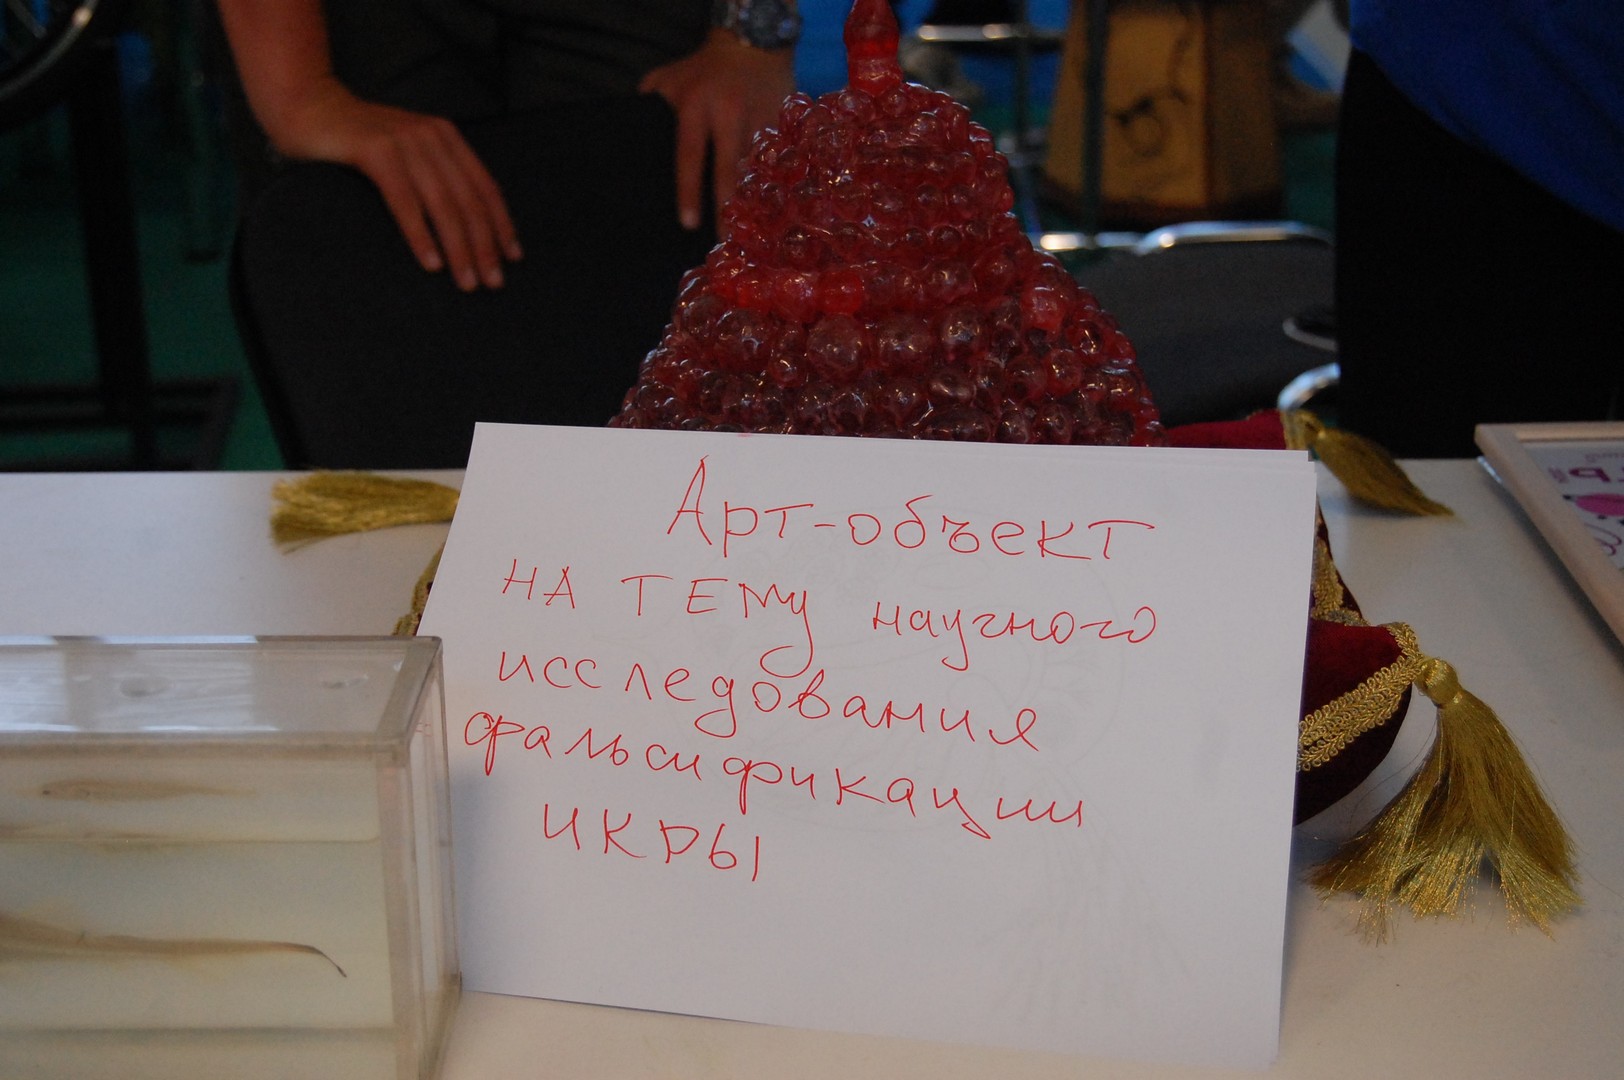 Арт-объект
НА ТЕМУ научного
исследования
фальсификации
ИКРЫ